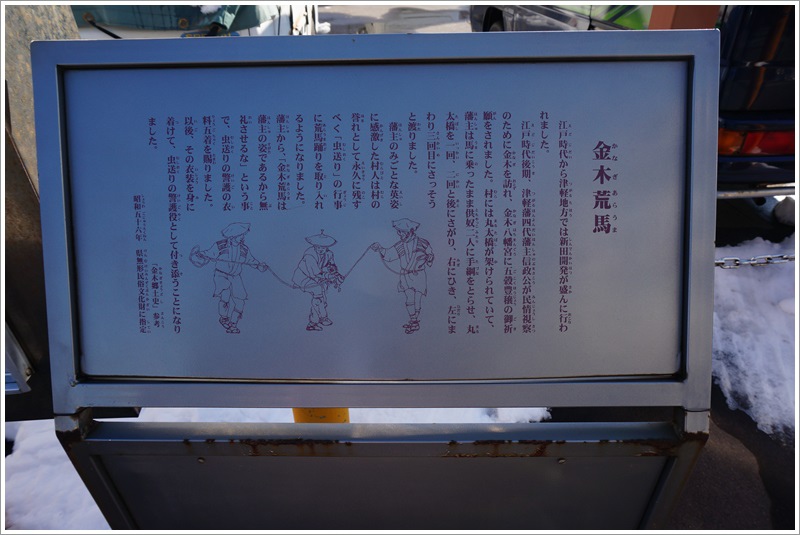 金木荒馬
かなぎあらうま
江戸時代から津軽地方では新田開発が盛んに行わ
れました。
江戸時代後期、津軽藩四代藩主信政公が民情視察
のために金木を訪れ、金木八幡宮に五穀豊穣の御祈
願をされました。村には丸太橋が架けられていて、
藩主は馬に乗ったまま供奴二人に手綱をとらせ、丸
太橋を一回、二回と後にさがり、右にひき、左にま
わり三回目にさっそう
と渡りました。
藩主のみごとな英姿
に感激した村人は村の
誉れとして永久に残す
べく「虫送り」の行事
に荒馬踊りを取り入れ
るようになりました。
藩主から「金木荒馬は
藩主の姿であるから無
礼させるな」という事
で、虫送りの警護の衣
料五着を賜りました。
以後、その衣装を身に
着けて、虫送りの警護役として付き添うことになり
ました。
「金木郷土史」参考
昭和五十六年 県無形民俗文化財に指定